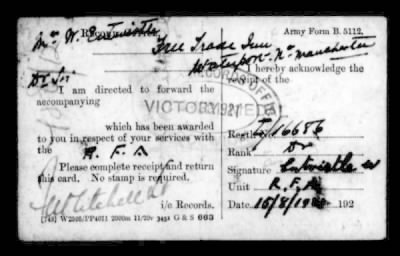 Mr W. Entwistle
Record Office,
Free Trade Inn
Waterpor. Nr Manchester
Dr Sir
I am directed to forward the
accompanying
VICTORY MEDAL
which has been awarded
to you in respect of your services with
the R. F. A
Please complete receipt and return
this card. No stamp is required.
i/c Records.
[748] W2505/PP4071 2000m 11/20v 3454 G & S 663
Army Form B. 5112.
I hereby acknowledge the
receipt of the
RECORD OFFICE
1921
Regtl. 16686
Rank Dr
Signature Entwistle W
Unit R. F. A
Date 15/8/192